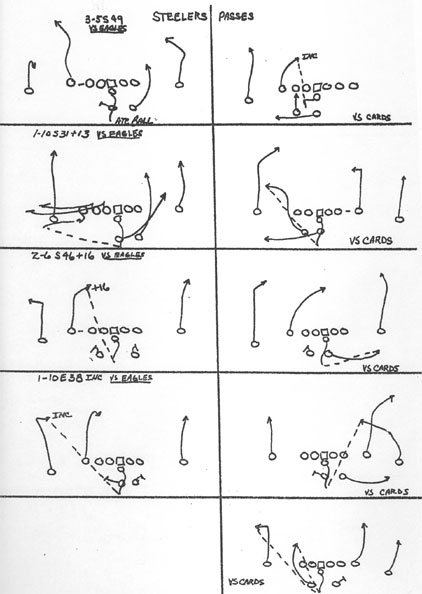 STEELERS PASSES
3-5 S 49
VS EAGLES
INC
ATT. ROLL
VS CARDS
1-10 S 31 +13 VS EAGLES
VS CARDS
2-6 S 46 +16 VS EAGLES
+16
VS CARDS
1-10 E 38 INC VS EAGLES
INC
VS CARDS
VS CARDS